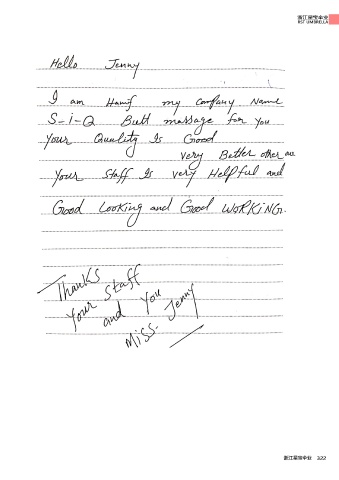 浙江星宝伞业
RST UMBRELLA
Hello Jenny
I am Hanif my Company Name
S-i-Q Butt massage for you
Your Quality Is Good
very Better other are
Your Staff Is very Helpful and
Good Looking and Good WORKiNG.
Thanks
Your Staff
and You
Miss. Jenny
浙江星宝伞业 322